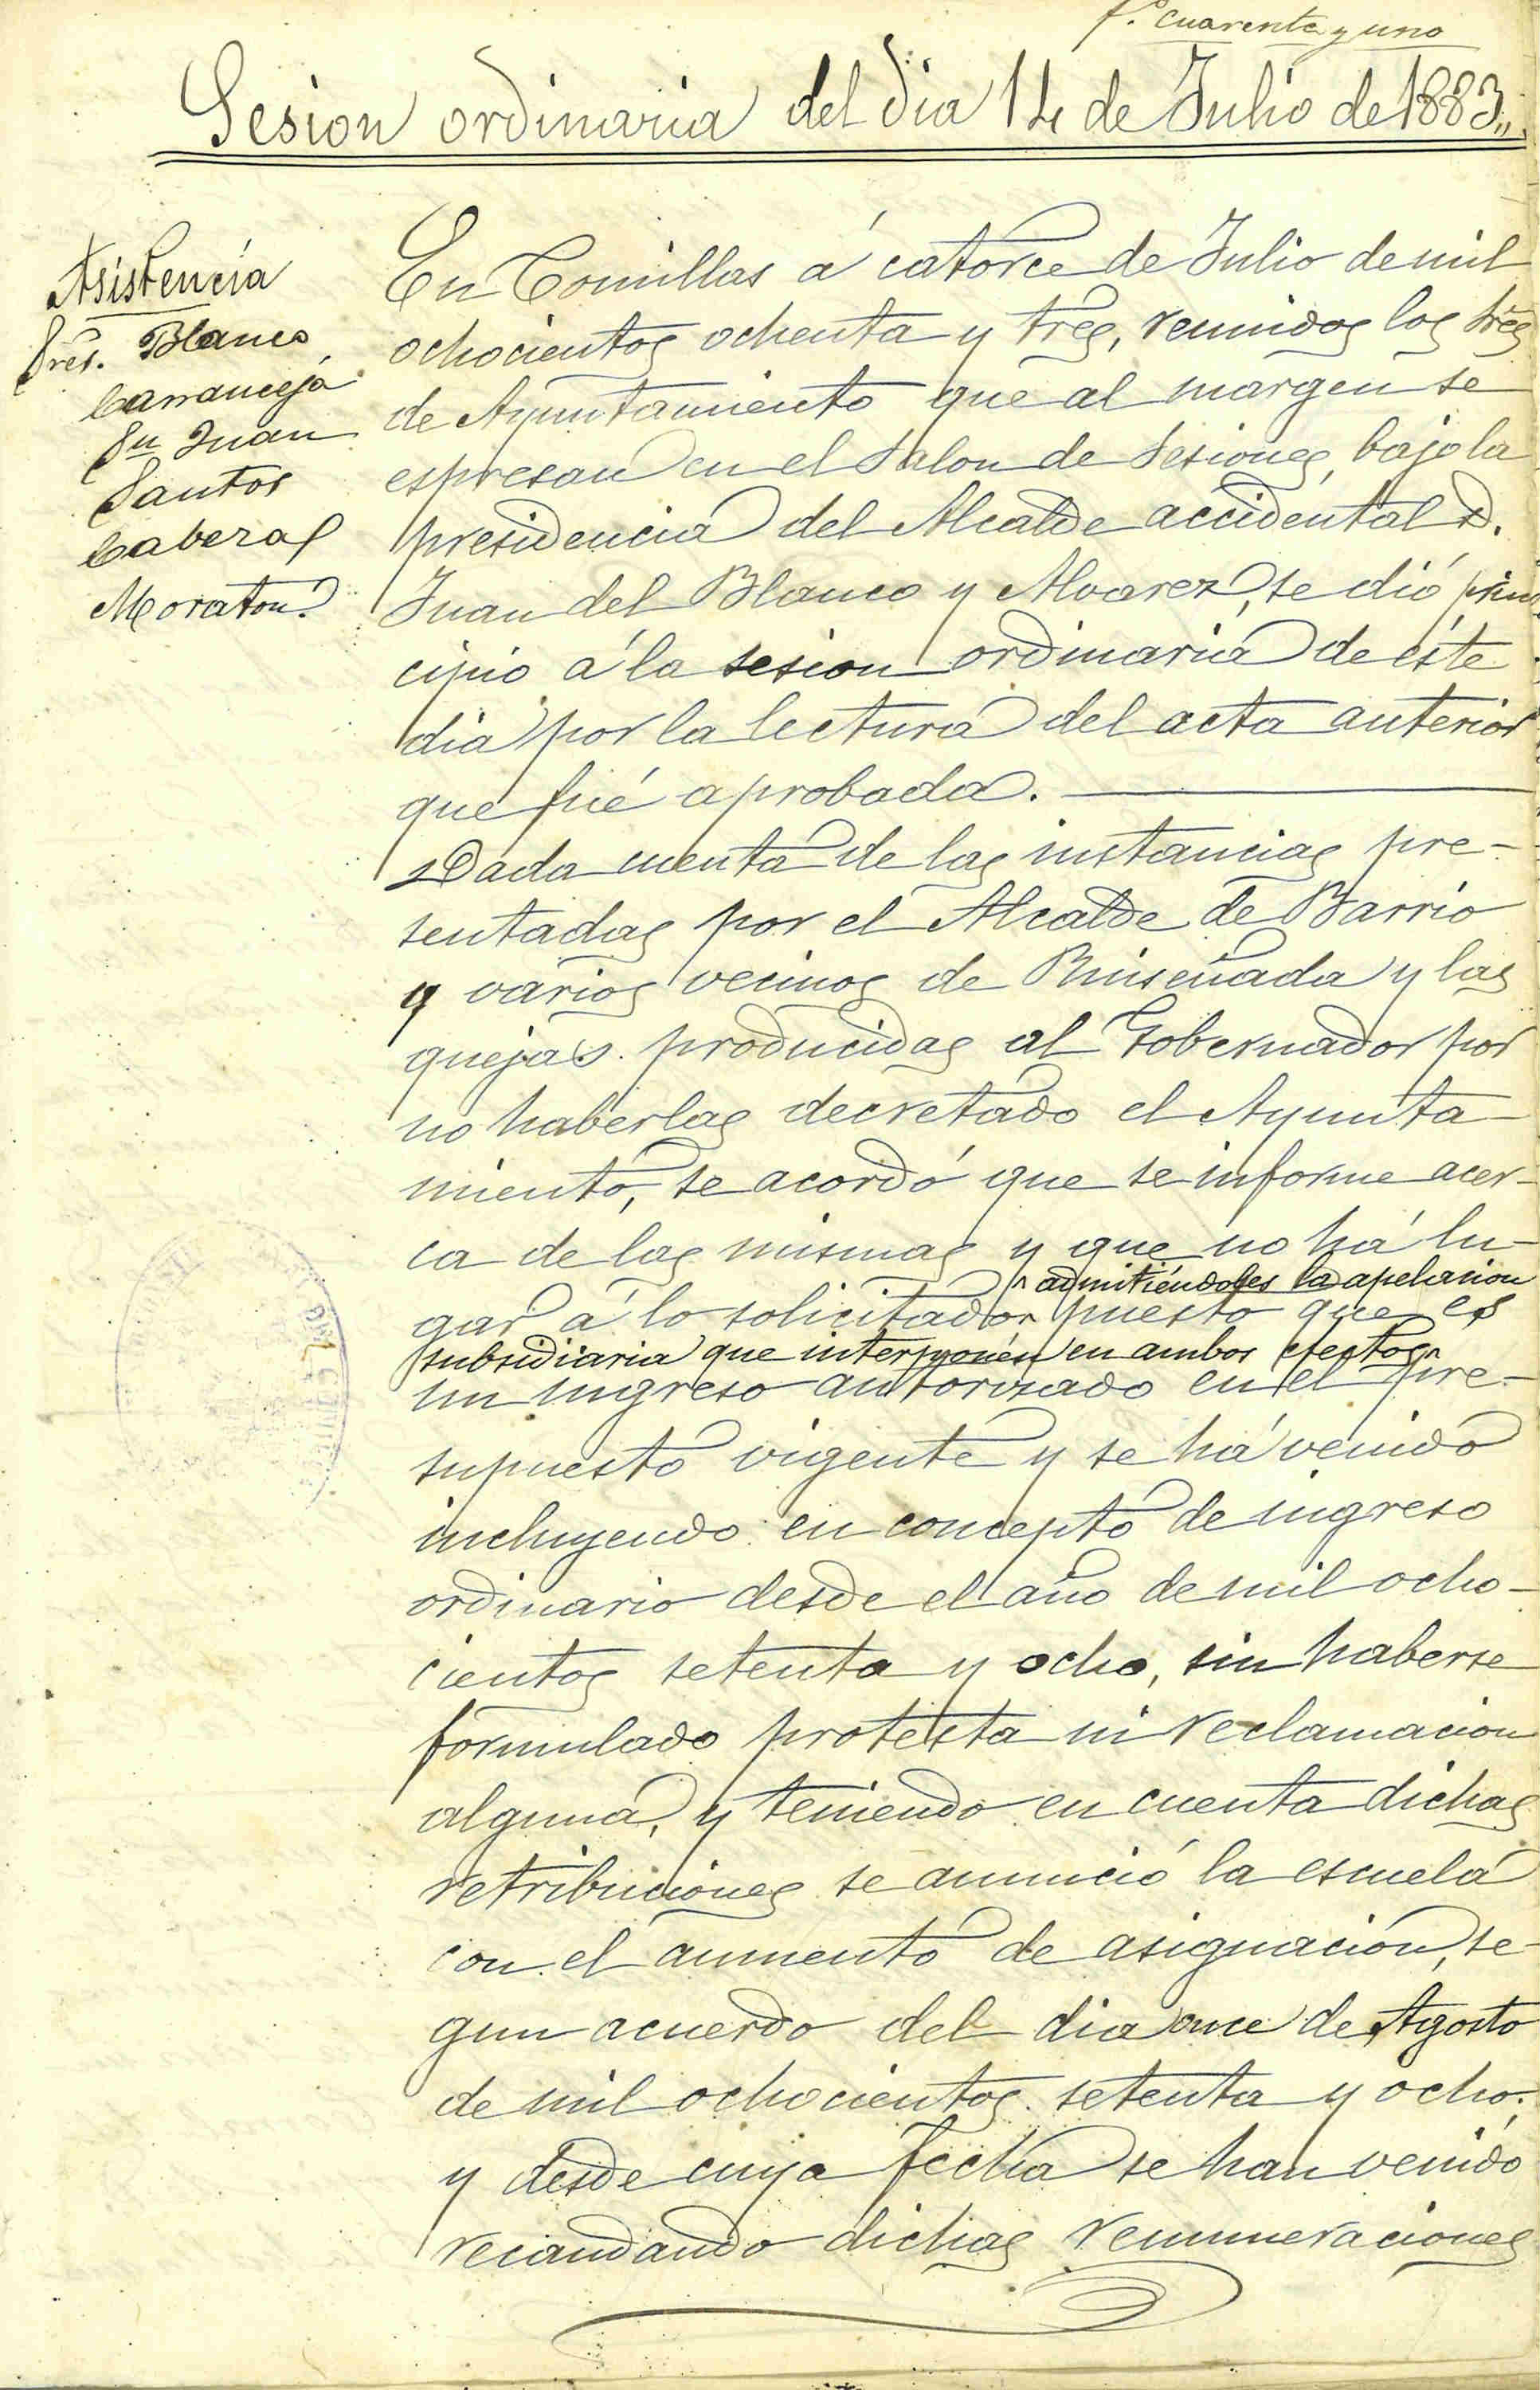 f.º cuarenta y uno
Sesion ordinaria del dia 14 de Julio de 1883.,
Asistencia
Sres. Blanco
Carranceja
Sn Juan
Santos
Caberaf
Moraton.
En Comillas á catorce de Julio de mil
ochocientos ochenta y tres, reunidos los Sres
de Ayuntamiento que al margen se
espresan en el Salon de Sesiones, bajo la
presidencia del Alcalde accidental D.
Juan del Blanco y Alvarez, se dió prin
cipio á la sesion ordinaria de éste
dia por la lectura del acta anterior
que fué aprobada.
Dada cuenta de las instancias pre-
sentadas por el Alcalde de Barrio
y varios vecinos de Ruiseñada y las
quejas producidas al Gobernador por
no haberlas decretado el Ayunta-
miento, se acordó que se informe acer-
ca de las mismas y que no há lu-
^ admitiéndoles la apelacion
gar á lo solicitado ^ puesto que es
subsidiaria que interponen en ambos efectos ^
un ingreso autorizado en el pre-
supuesto vigente y se há venido
incluyendo en concepto de ingreso
ordinario desde el año de mil ocho-
cientos setenta y ocho, sin haberse
formulado protesta ni reclamacion
alguna, y teniendo en cuenta dichas
retribuciones se anunció la escuela
con el aumento de asignacion, se-
gun acuerdo del dia once de Agosto
de mil ochocientos setenta y ocho,
y desde cuya fecha se han venido
recaudando dichas remuneraciones